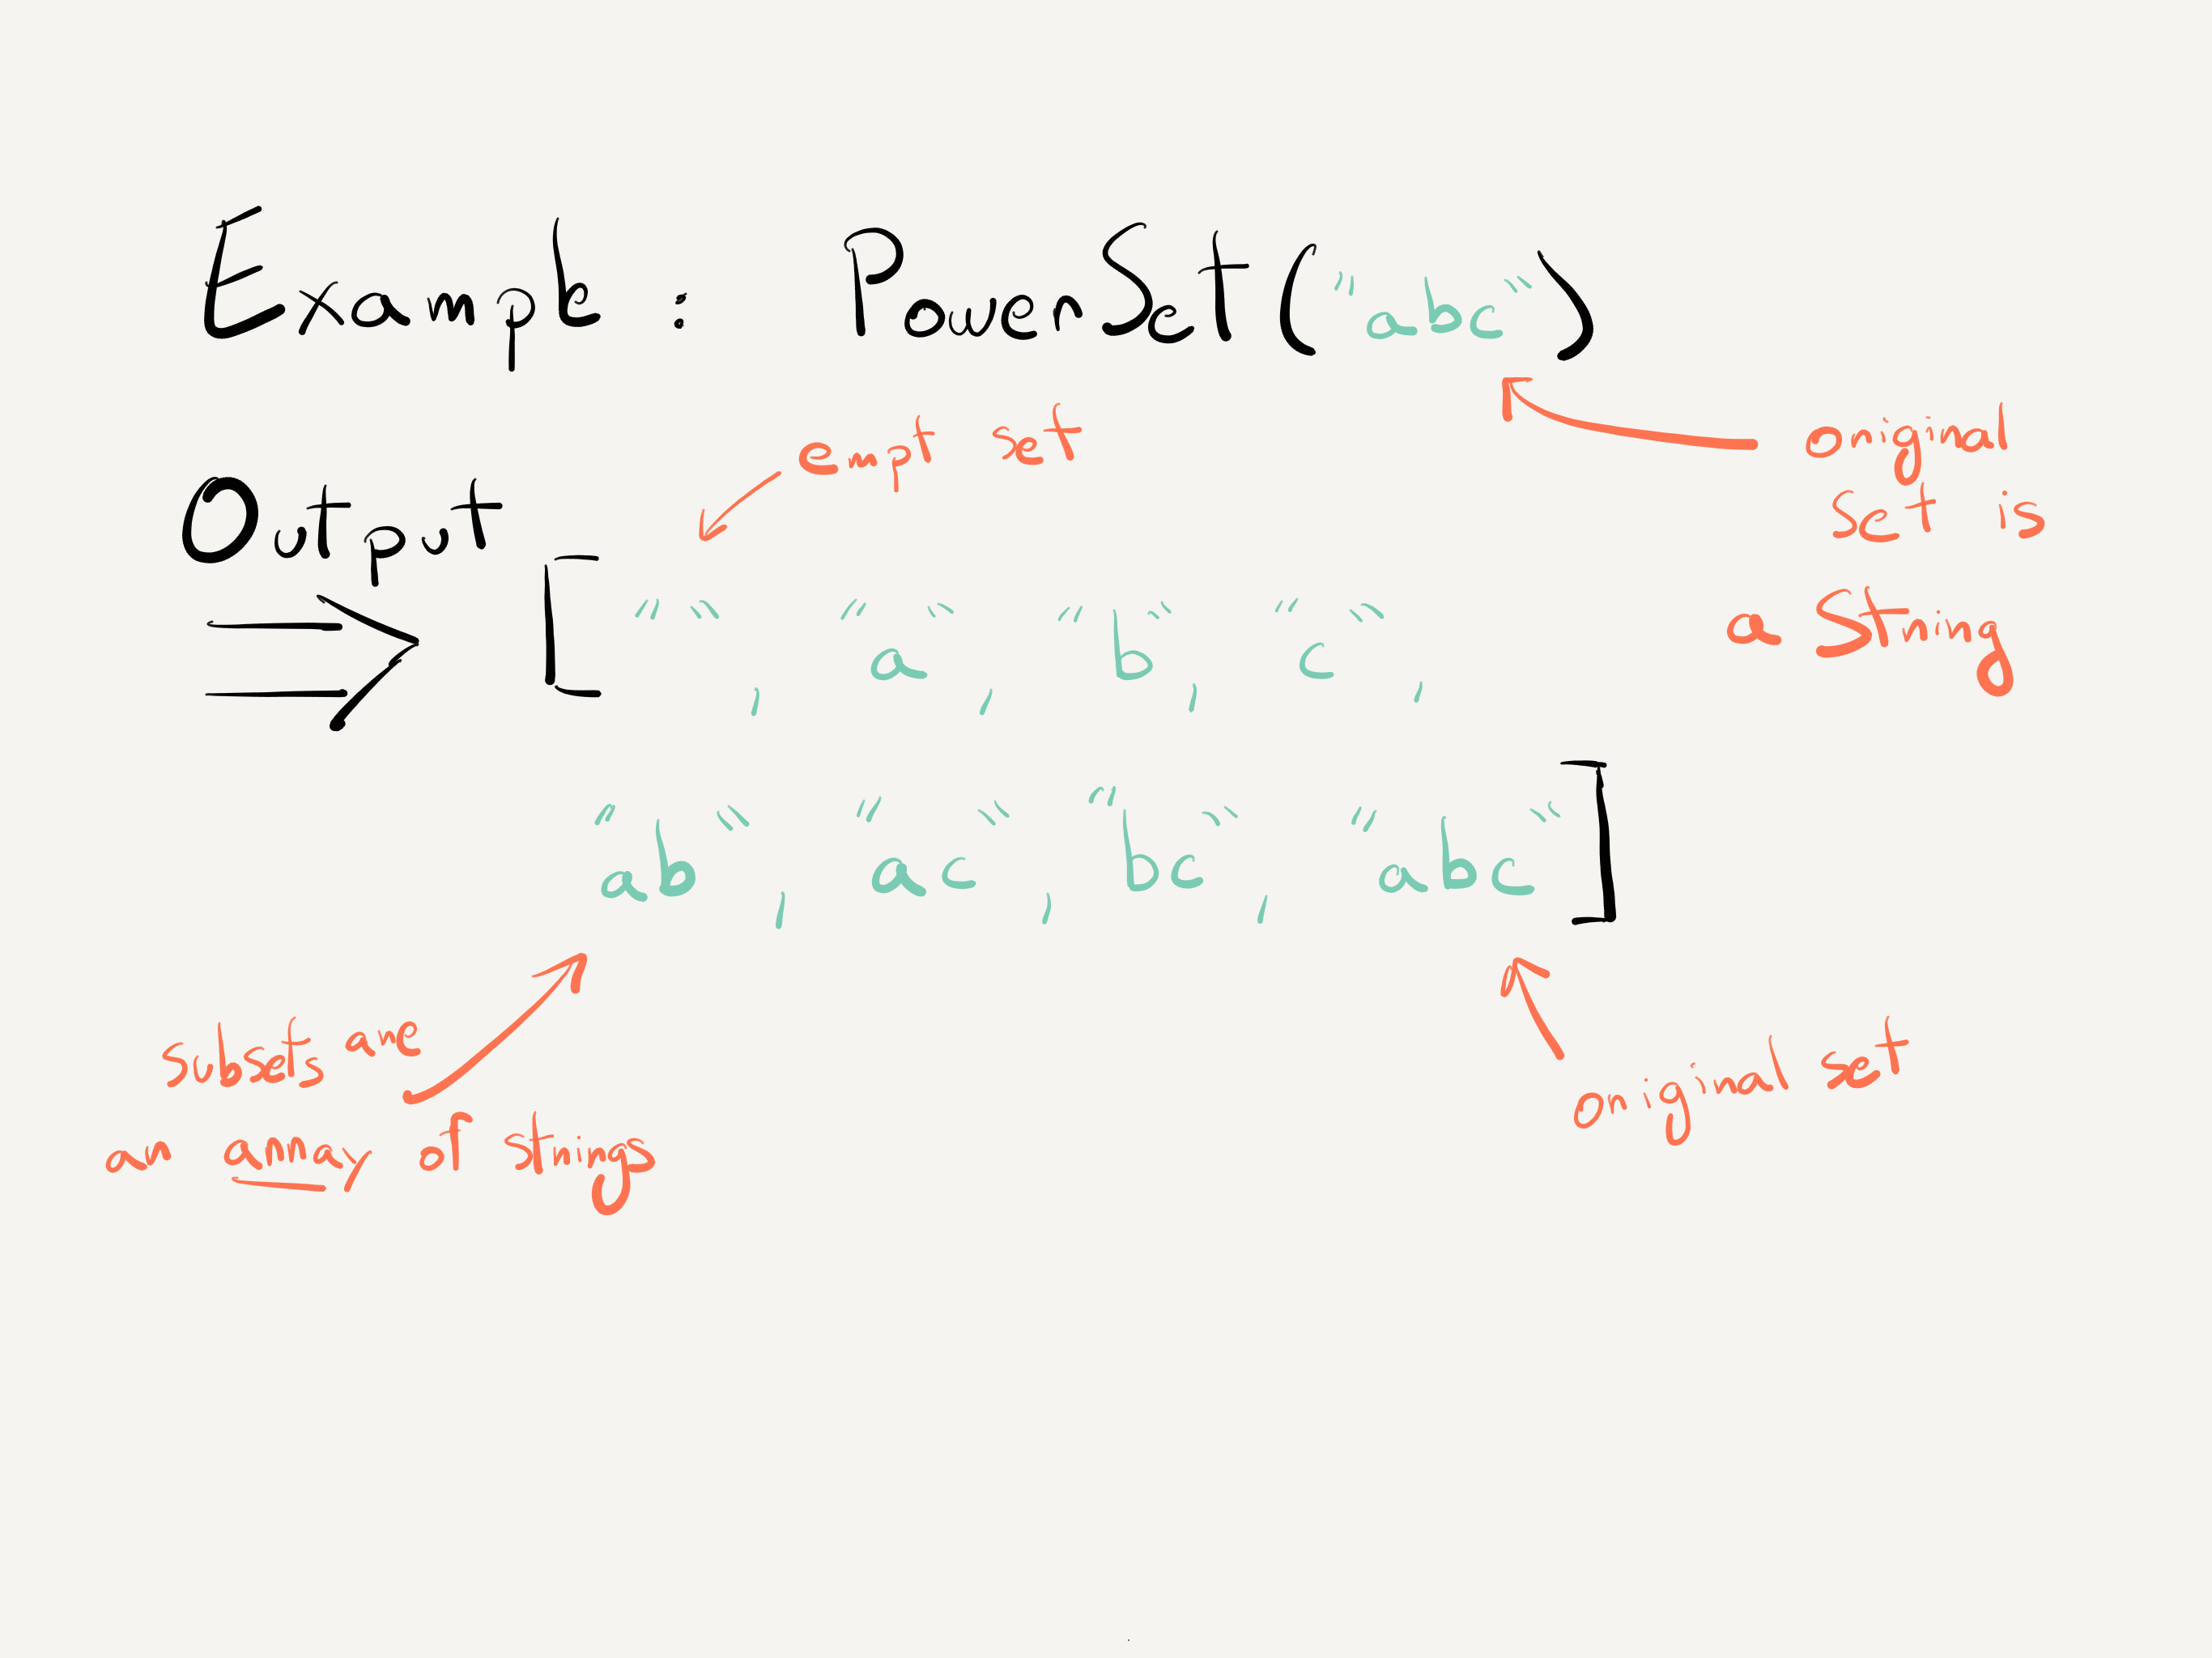 Example: PowerSet("abc")
empt set
original
set is
a String
Output
[ "", "a", "b", "c",
"ab", "ac", "bc", "abc" ]
Subsets are
an array of strings
original set